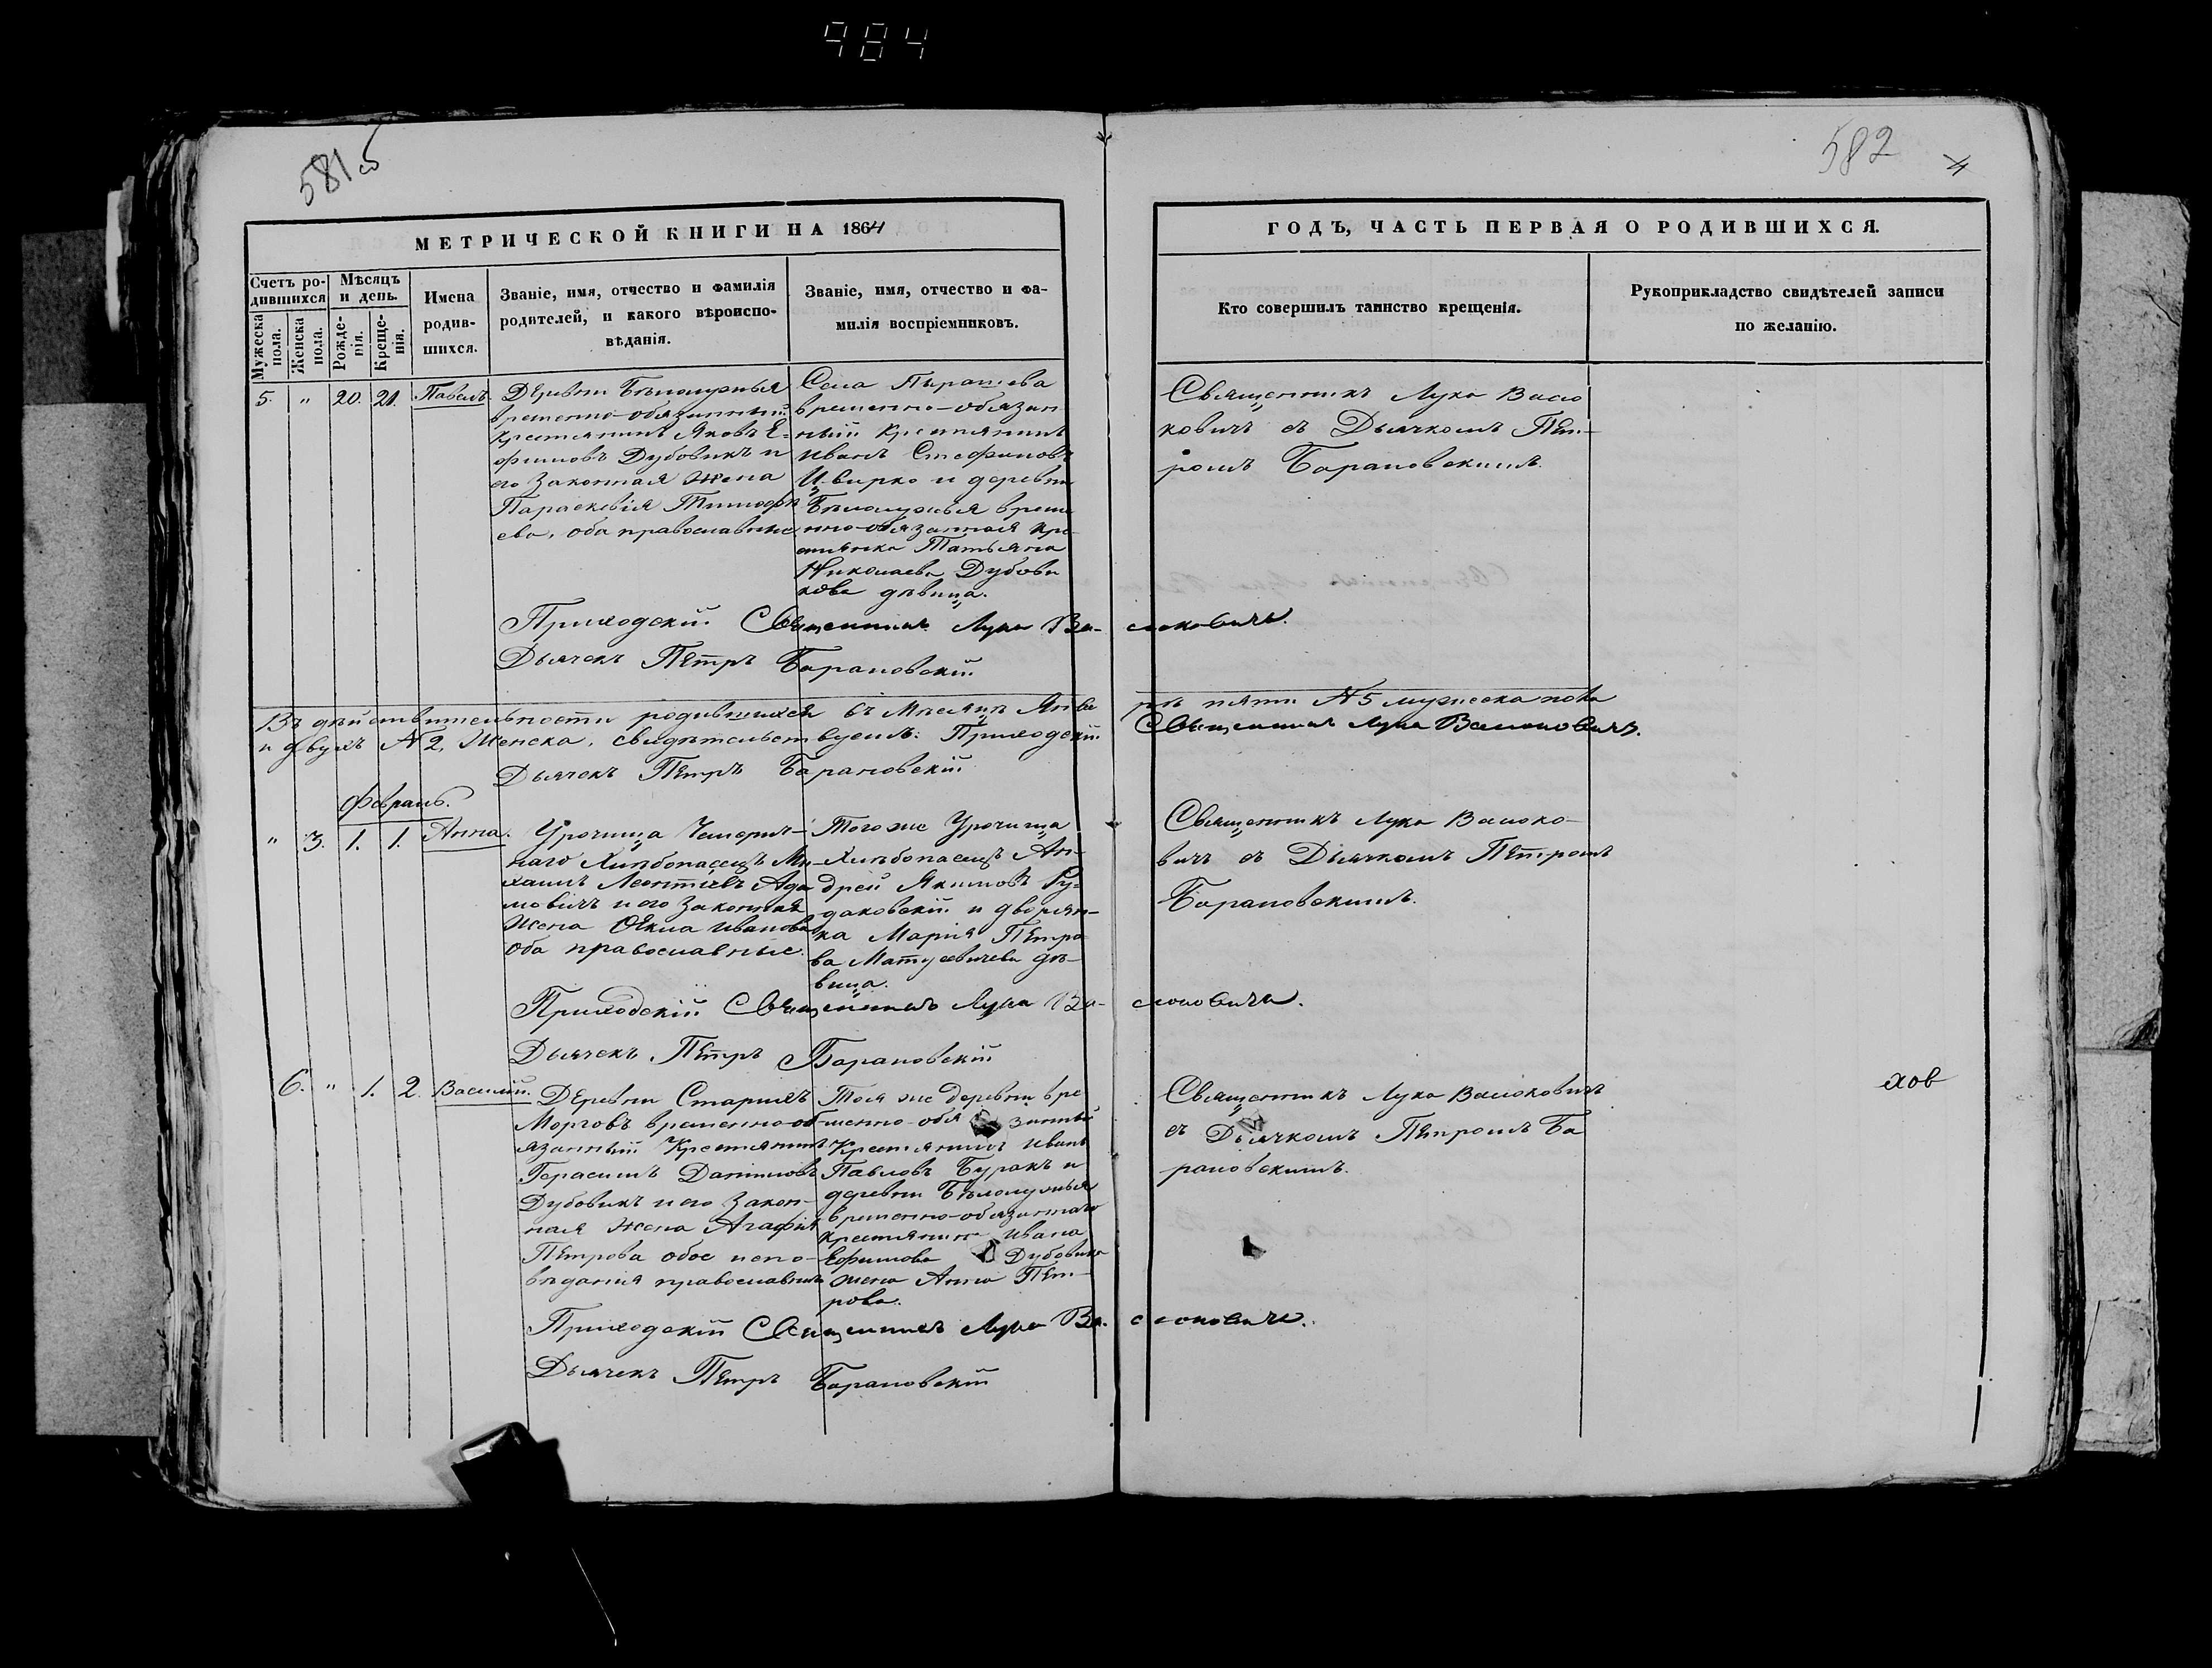 984
581 об
582
МЕТРИЧЕСКОЙ КНИГИ НА 1864
ГОДЪ, ЧАСТЬ ПЕРВАЯ О РОДИВШИХСЯ.
Счетъ ро-
дившихся
Мужеска
пола.
Женска
пола.
Мѣсяцъ
и день.
Рожде-
нія.
Креще-
нія.
Имена
родив-
шихся.
Званіе, имя, отчество и фамилія
родителей, и какого вѣроиспо-
вѣданія.
Званіе, имя, отчество и фа-
милія воспріемниковъ.
Кто совершилъ таинство крещенія.
Рукоприкладство свидѣтелей записи
по желанію.
5. " 20. 21. Павелъ
Деревни Бѣлолужья
временно-обязанный
крестянинъ Яковъ Е-
фимовъ Дубовикъ и
его Законная жена
Параскевія Тимофѣ
ева, оба православные
Села Пырашева
временно-обязан
ный крестянинъ
Иванъ Стефановъ
Цвирко и деревни
Бѣлолужья време
нно-обязанная кре
стянка Татьяна
Николаева Дубови
кова дѣвица.
Священникъ Лука Васю
ковичъ съ Дьячкомъ Пет-
ромъ Барановскимъ.
Приходскій Священникъ Лука Ва-
Дьячекъ Петръ Барановскій
Въ дѣйствительности родившихся въ Мѣсяцѣ Янва
рѣ пяти №5 мужеска пола
и двухъ №2, Женска, свидѣтельствуемъ: Приходскій
Священникъ Лука
Дьячекъ Петръ Барановскій
Февраль.
" 3. 1. 1. Анна.
Урочища
наго Хлѣбопашецъ Ми-
хаилъ Леонтіевъ Ада
мовичъ и его Законная
Жена Ѳекла Иванова
Оба православные.
Того же Урочища
Хлѣбопашецъ Ан-
дрей Якимовъ Ру-
даковскій и дворян-
ка Марія Петро
ва Матусевичева дѣ-
вица.
Священникъ Лука
вичъ съ Дьячкомъ Петромъ
Барановскимъ.
Приходскій Священникъ Лука Ва-
Дьячекъ Петръ Барановскій
6. " 1. 2. Василій.
Деревни Старыхъ
Морговъ временно-об
язанный Крестянинъ
Герасимъ Даниловъ
Дубовикъ и его Закон-
ная жена Агафія
Петрова обое испо-
вѣданія православнаго
Тоя же деревни вре
менно-обязанный
Крестянинъ Иванъ
Павловъ Буракъ и
деревни Бѣлолужья
временно-обязаннаго
крестянина Ивана
Ефимова Дубовика
жена Анна Пет-
рова.
Священникъ Лука
съ Дьячкомъ Петромъ Ба
рановскимъ.
Приходскій Священникъ Лука Ва-
Дьячекъ Петръ Барановскій